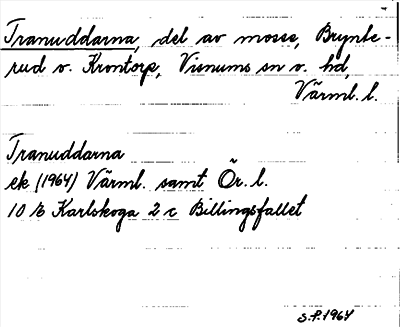 Tranuddarna, del av mosse, Brynte-
rud v. Krontorp, Visnums sn o. hd,
Värml. l.
Tranuddarna
ek (1964) Värml. samt Ör. l.
10 E Karlskoga 2 c Billingsfallet
S.F. 1964